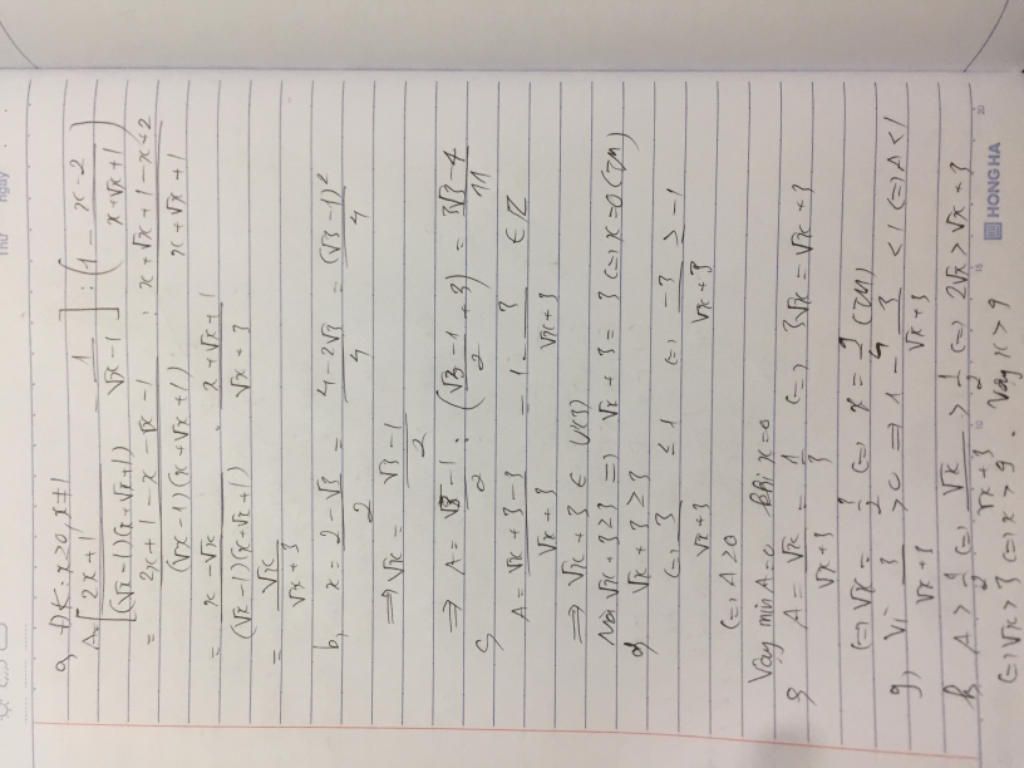 Thứ
ngày
a, ĐK: x≥0, x≠1
A = [(2x+1)/((√x-1)(x+√x+1)) - 1/(√x-1)] : (1 - (x-2)/(x+√x+1))
= (2x+1-x-√x-1)/((√x-1)(x+√x+1)) : (x+√x+1-x+2)/(x+√x+1)
= (x-√x)/((√x-1)(x+√x+1)) . (x+√x+1)/(√x+3)
= √x/(√x+3)
b, x = (2-√3)/2 = (4-2√3)/4 = (√3-1)²/4
⇒ √x = (√3-1)/2
⇒ A = (√3-1)/2 : ((√3-1)/2 + 3) = (3√3-4)/11
c, A = (√x+3-3)/(√x+3) = 1 - 3/(√x+3) ∈ Z
⇒ √x+3 ∈ Ư(3)
Mà √x+3≥3 ⇒ √x+3 = 3 (=) x=0 (TM)
d, √x+3 ≥ 3
(=) 3/(√x+3) ≤ 1 (=) -3/(√x+3) ≥ -1
(=) A≥0
Vậy min A=0 khi x=0
e, A = √x/(√x+3) = 1/3 (=) 3√x = √x+3
(=) √x = 3/2 (=) x = 9/4 (TM)
g, Vì 3/(√x+3) >0 ⇒ 1 - 3/(√x+3) < 1 (=) A<1
h, A > 1/2 (=) √x/(√x+3) > 1/2 (=) 2√x > √x+3
(=) √x > 3 (=) x > 9. Vậy x > 9
HONG HA
10
15
20